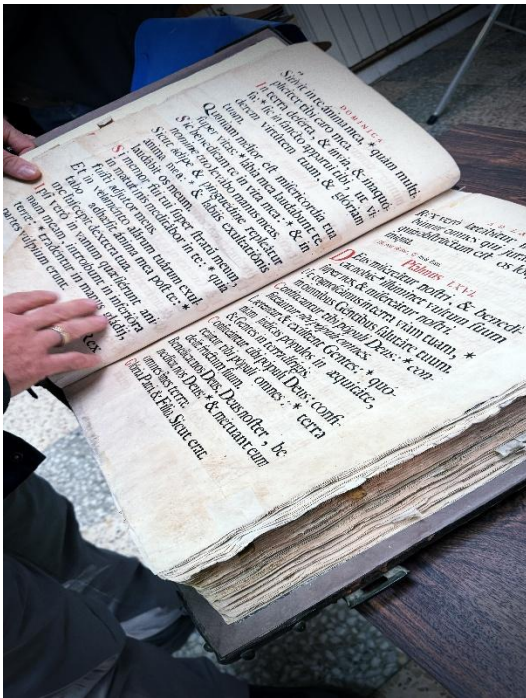 DOMINICA
Sitivit in te ánima mea, * quàm multi-
pliciter tibi caro mea.
In terra deserta, & invia, & inaquo-
sa: * sic in sancto apparui tibi, ut vi-
derem virtútem tuam, & glóriam
tuam.
Quoniam melior est misericordia tua
super vitas: * labia mea laudabunt te.
Sic benedicam te in vita mea: * & in
nomine tuo levabo manus meas.
Sicut adipe, & pinguedine repleatur
anima mea: * & labiis exultationis
laudabit os meum.
Si memor fui tui super stratum meum,
in matutinis meditabor in te: * quia
fuisti adjutor meus.
Et in velamento alarum tuarum exul-
tabo, adhæsit anima mea post te: *
me suscepit dextera tua.
Ipsi verò in vanum quæsierunt ani-
mam meam, introibunt in inferiora
terræ: * tradentur in manus gladii,
partes vulpium erunt.
Rex
Rex verò lætabitur in
omnes qui jurant
quia obstructum est os lo
iniqua.
Psalmus LXVI.
Deus misereatur nostri, & benedi-
cat nobis: * illuminet vultum suum
super nos, & misereatur nostri.
Ut cognoscamus in terra viam tuam, *
in omnibus Gentibus salutare tuum.
Confiteantur tibi populi Deus: * con-
fiteantur tibi populi omnes.
Lætentur, & exultent Gentes: * quo-
niam judicas populos in æquitate,
& Gentes in terra dirigis.
Confiteantur tibi populi Deus: confi-
teantur tibi populi omnes: * terra
dedit fructum suum.
Benedicat nos Deus, Deus noster, be-
nedicat nos Deus: * & metuant eum
omnes fines terræ.
Gloria Patri, & Filio. Sicut erat.